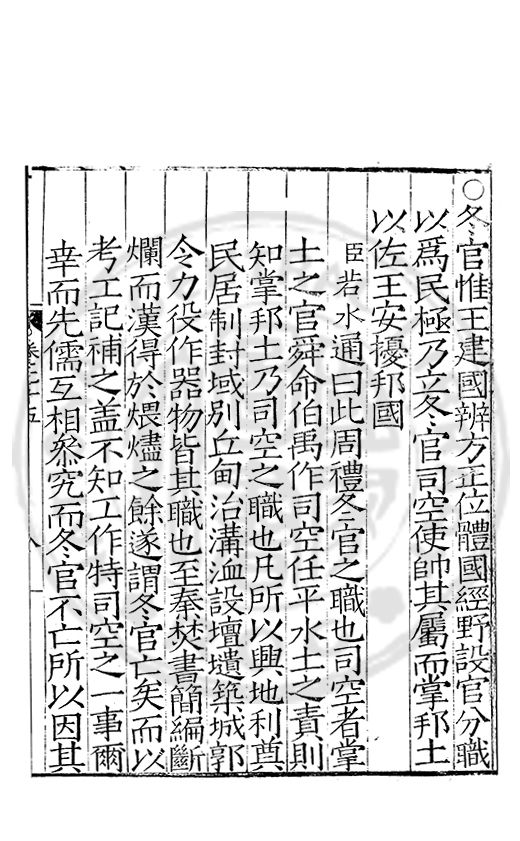 ○冬官惟王建國辨方正位體國經野設官分職
以爲民極乃立冬官司空使帥其屬而掌邦土
以佐王安擾邦國
臣若水通曰此周禮冬官之職也司空者掌
土之官舜命伯禹作司空任平水土之責則
知掌邦土乃司空之職也凡所以興地利奠
民居制封域別丘甸治溝洫設壇壝築城郭
令力役作器物皆其職也至秦焚書簡編斷
爛而漢得於煨燼之餘遂謂冬官亡矣而以
考工記補之盖不知工作特司空之一事爾
幸而先儒互相叅究而冬官不亡所以因其
八